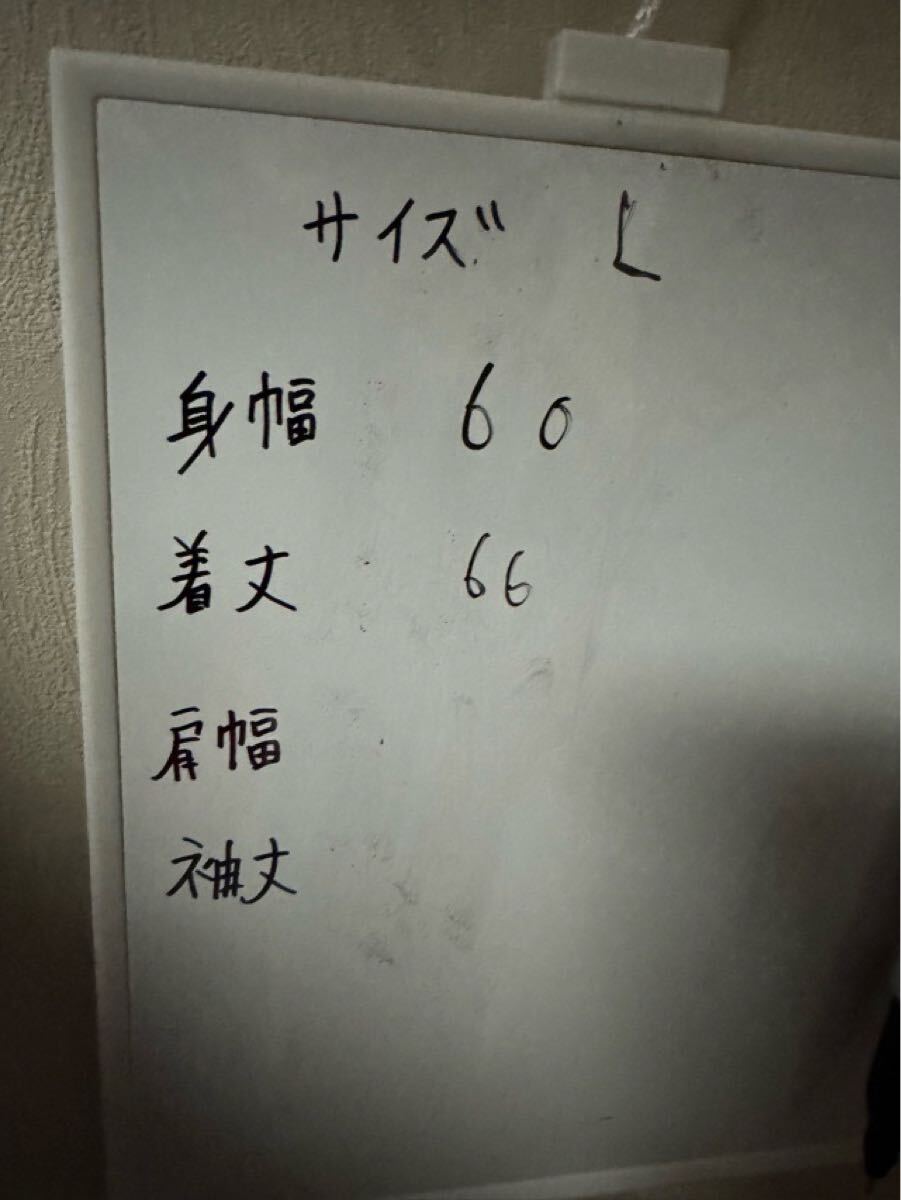 サイズ L
身幅 60
着丈 66
肩幅
袖丈